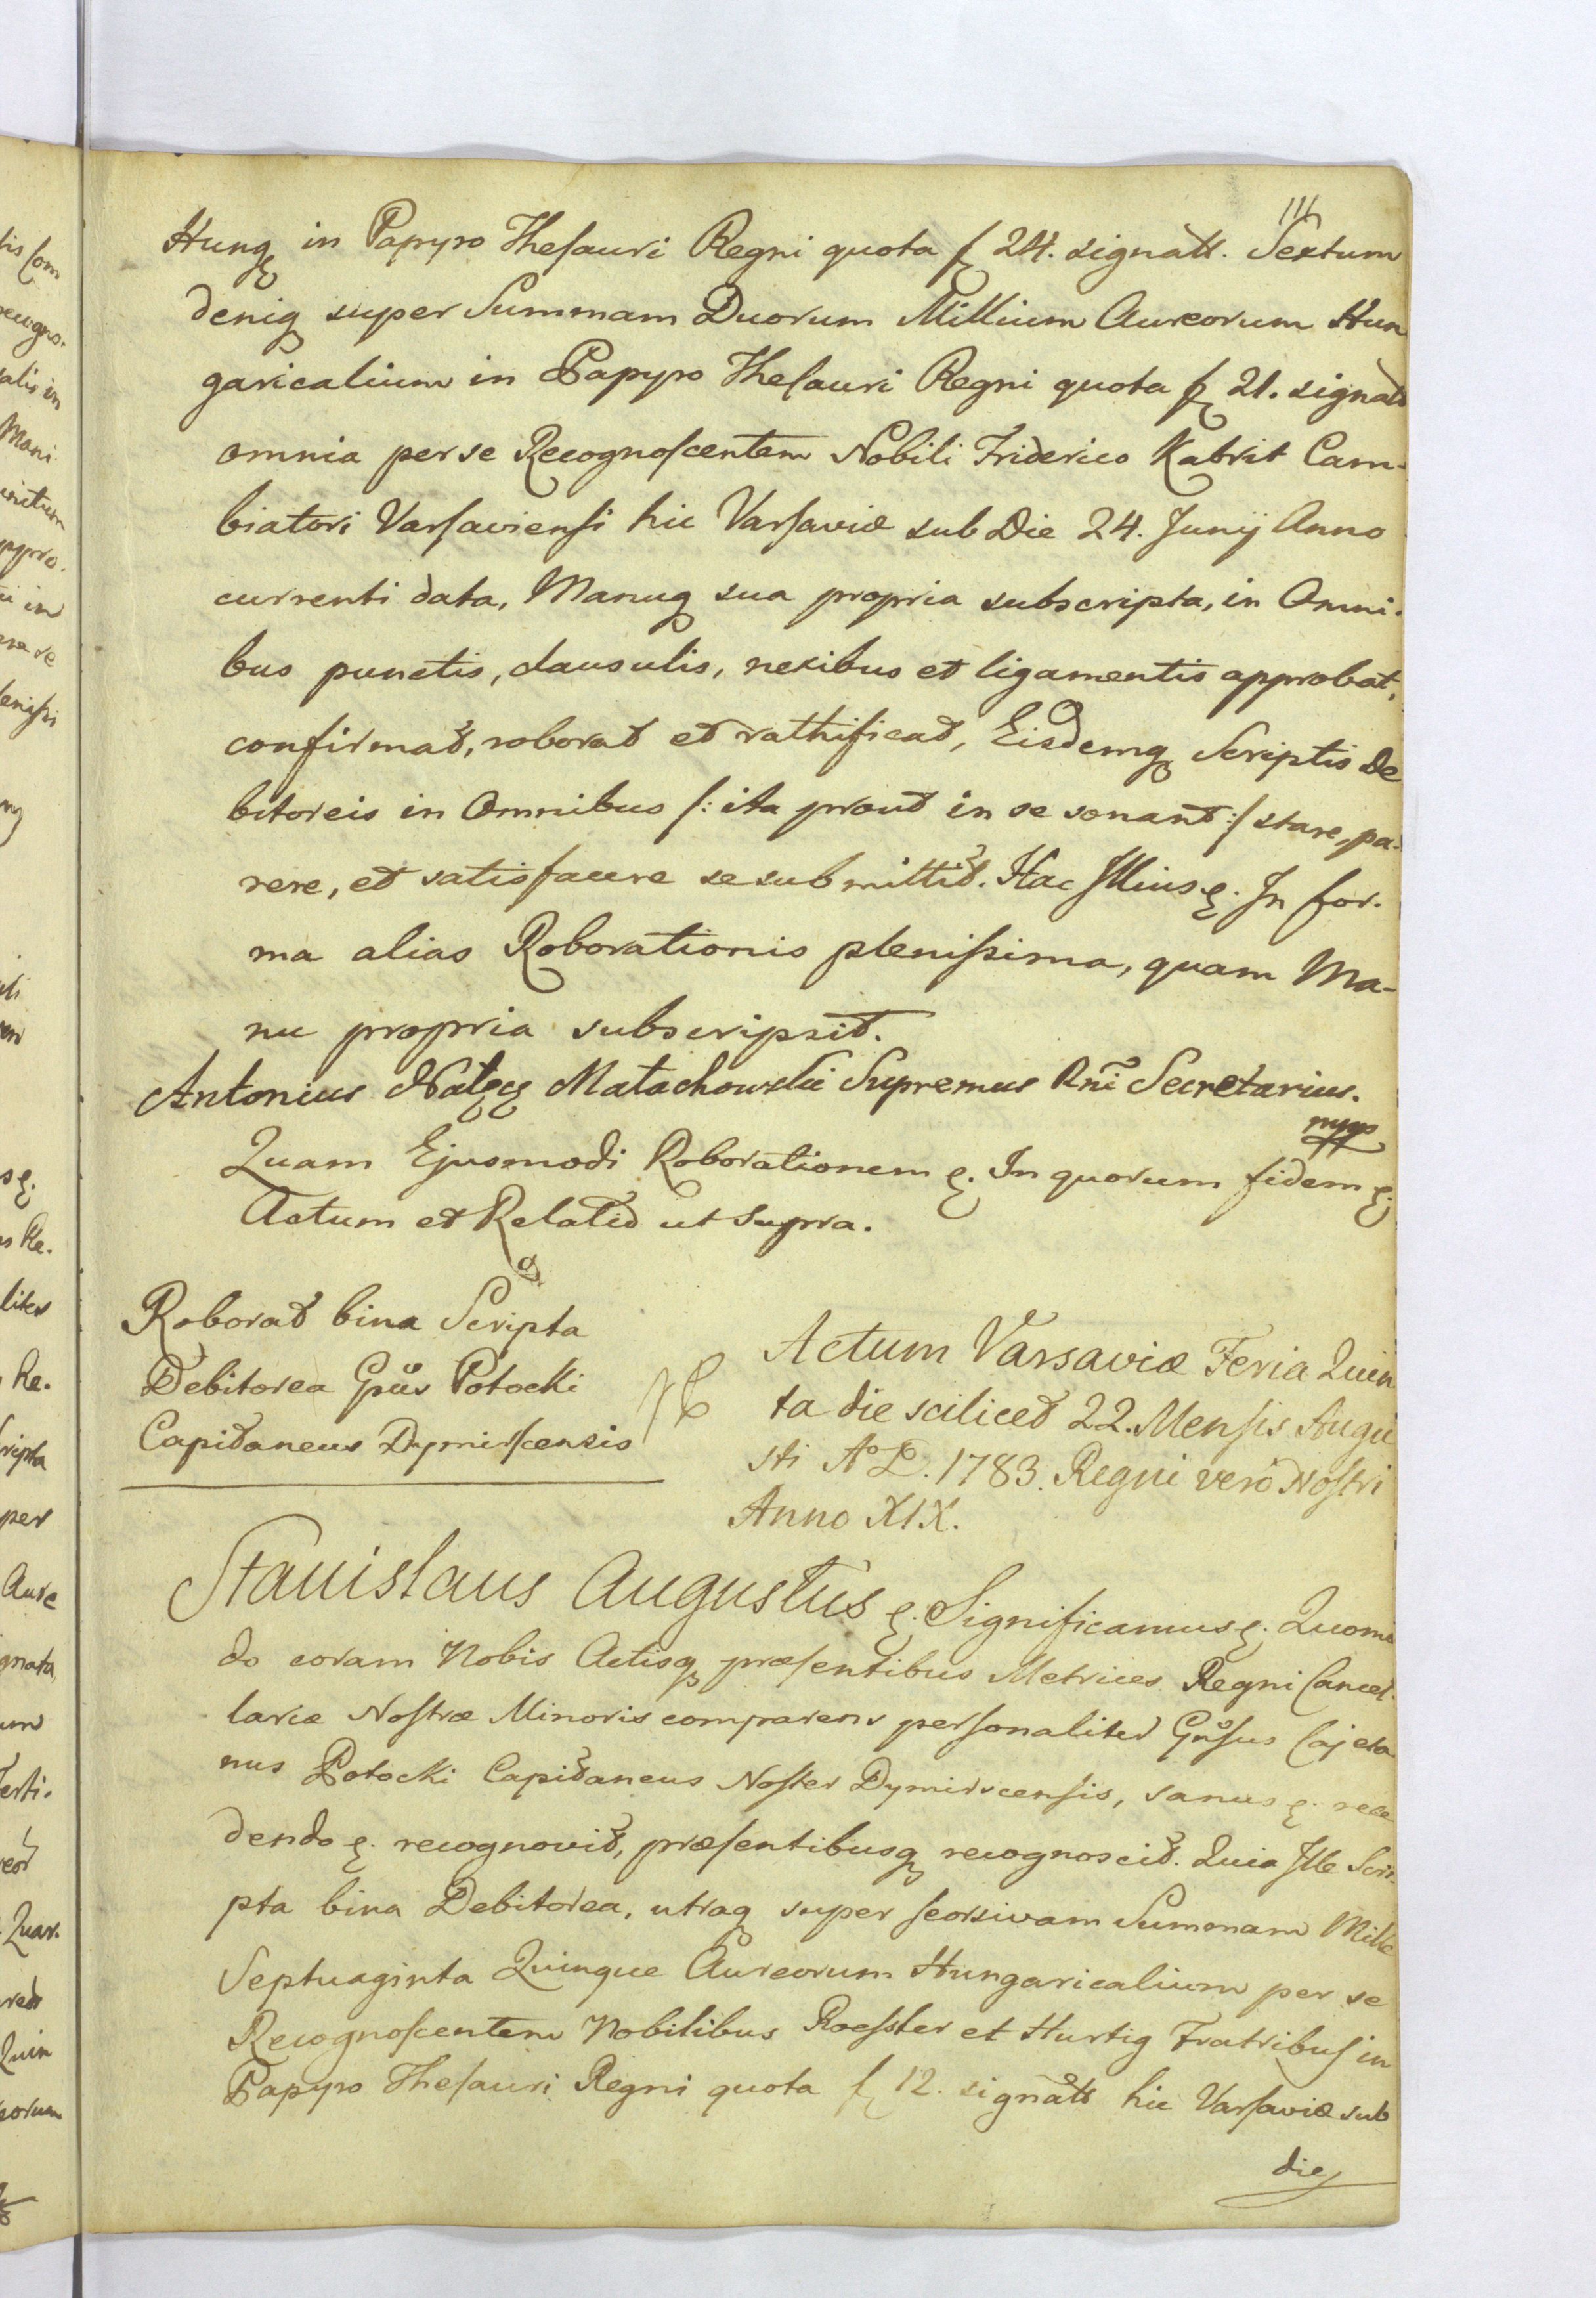 111
Hungę in Papyro Thesauri Regni quota fl 24. signatt. Sextum
deniq super Summam Duorum Millium Aureorum Hun
garicalium in Papyro Thesauri Regni quota fl 21. signatt
omnia per se Recognoscentem Nobili Friderico Kabrit Cam-
biatori Varsaviensi hic Varsaviæ sub Die 24. Junij Anno
currenti data, Manuq sua propria subscripta, in Omni-
bus punctis, clausulis, nexibus et ligamentis approbat,
confirmat, roborat et rathificat, Eisdemq Scriptis De
bitoreis in Omnibus /: ita prout in se sonant :/ stare, pa-
rere, et satisfacere se submittit. Hac Illius ę. In for-
ma alias Roborationis plenissima, quam Ma-
nu propria subscripsit.
Antonius Nałęcz Małachowski Supremus Rni Secretarius.
mpp
Quam Ejusmodi Roborationem ę. In quorum fidem ę.
Actum et Relatio ut supra.
Roborat bina Scripta
Debitorea Gnus Potocki
Capitaneus Dymirscensis
Actum Varsaviæ Feria Quin
ta die scilicet 22. Mensis Augu
sti A° D. 1783. Regni vero Nostri
Anno XIX.
Stanislaus Augustus ę. Significamus ę. Quomo
do coram Nobis Actisq præsentibus Metrices Regni Cancel-
lariæ Nostræ Minoris comparens personaliter Gnsus Cajeta
nus Potocki Capitaneus Noster Dymirscensis, sanus ę. rece
dendo ę. recognovit, præsentibusq recognoscit. Quia Ille Scri-
pta bina Debitorea, utraq super seorsivam Summam Mille
Septuaginta Quinque Aureorum Hungaricalium per se
Recognoscentem Nobilibus Roessler et Hurtig Fratribus in
Papyro Thesauri Regni quota fl 12. signatt hic Varsaviæ sub
die